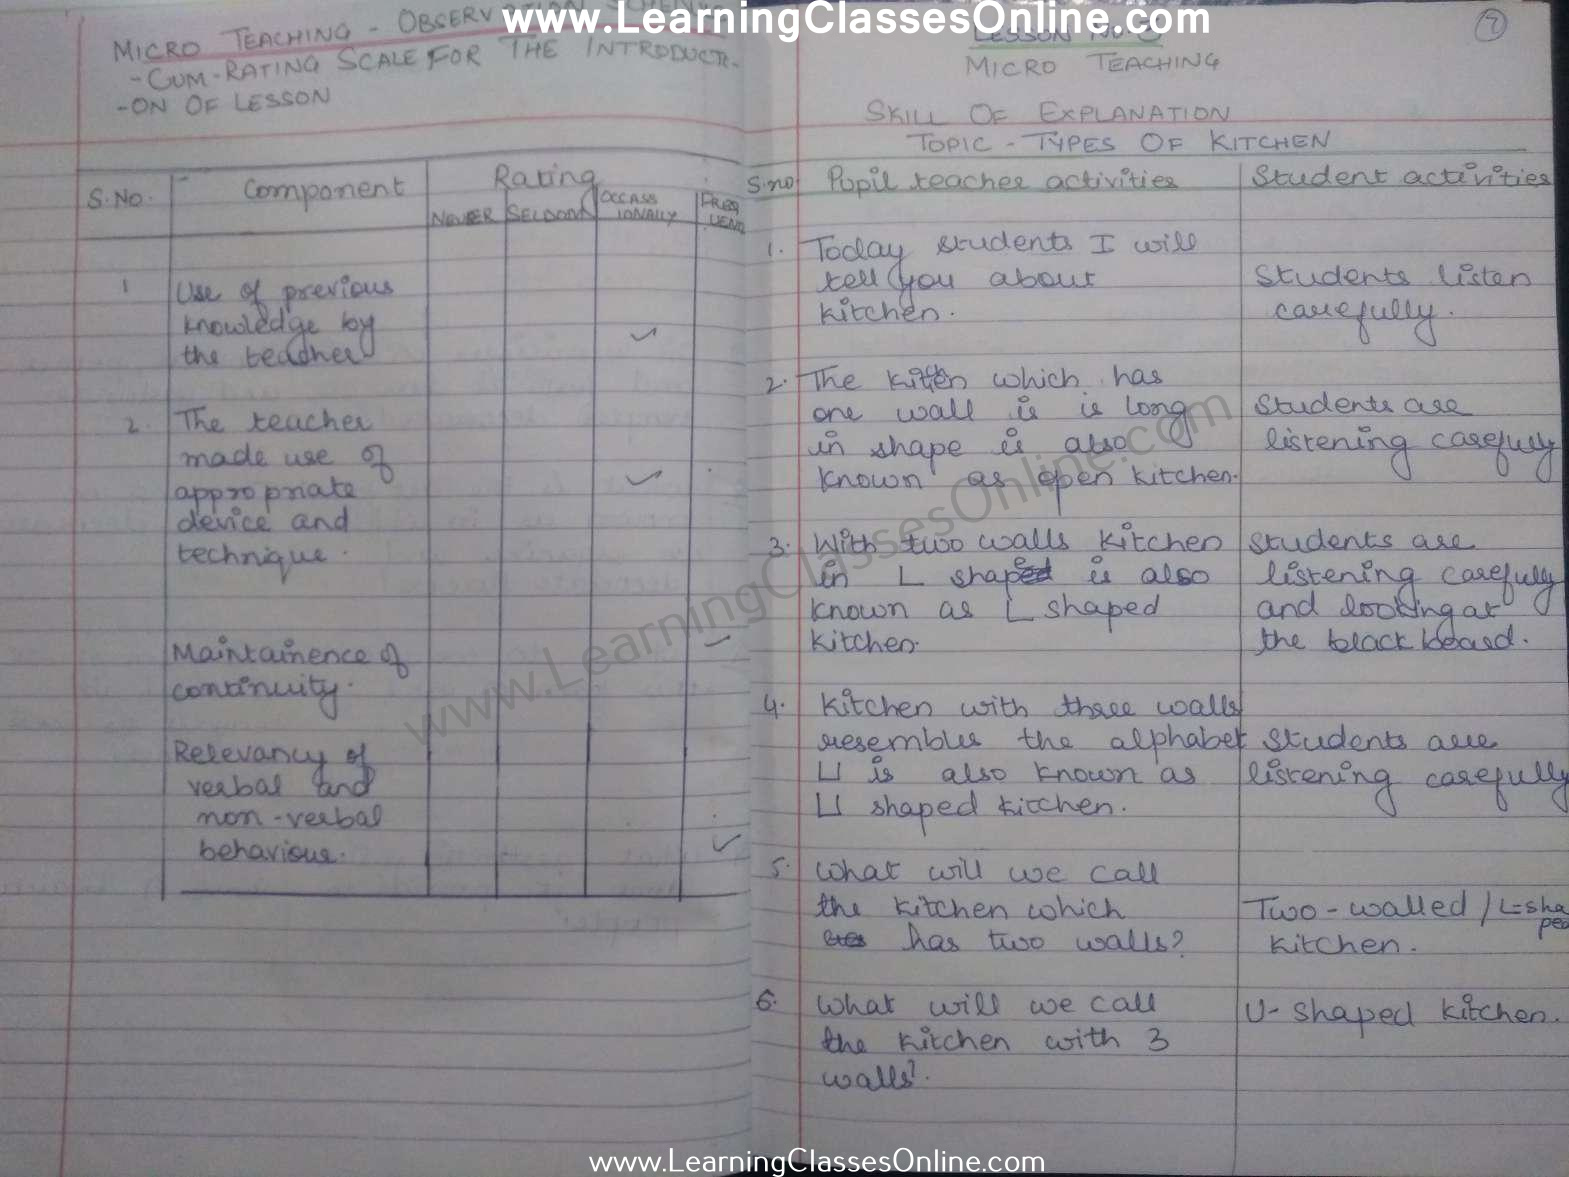 www.LearningClassesOnline.com
MICRO TEACHING - OBSERVATION
-CUM-RATING SCALE FOR THE INTRODUCTI-
-ON OF LESSON
S.No. Component Rating
NEVER SELDOM OCCASS IONALLY FREQ UENT
1 Use of previous
knowledge by
the teacher
2. The teacher
made use of
appropriate
device and
technique.
Maintainence of
continuity.
Relevancy of
verbal and
non-verbal
behaviour.
7
LESSON No-
MICRO TEACHING
SKILL OF EXPLANATION
TOPIC - TYPES OF KITCHEN
S.no Pupil teacher activities Student activities
1. Today students I will
tell you about
kitchen.
Students listen
carefully.
2. The kitten which has
one wall is is long
in shape is also
known as open kitchen.
Students are
listening carefully
3. With two walls kitchen
in L shaped is also
known as L shaped
kitchen.
Students are
listening carefully
and looking at
the black board.
4. Kitchen with three walls
resembles the alphabet
U is also known as
U shaped kitchen.
Students are
listening carefully
5. What will we call
the kitchen which
has two walls?
Two-walled / L-sha
ped
kitchen.
6. What will we call
the kitchen with 3
walls?
U-shaped kitchen.
www.LearningClassesOnline.com
www.LearningClassesOnline.com